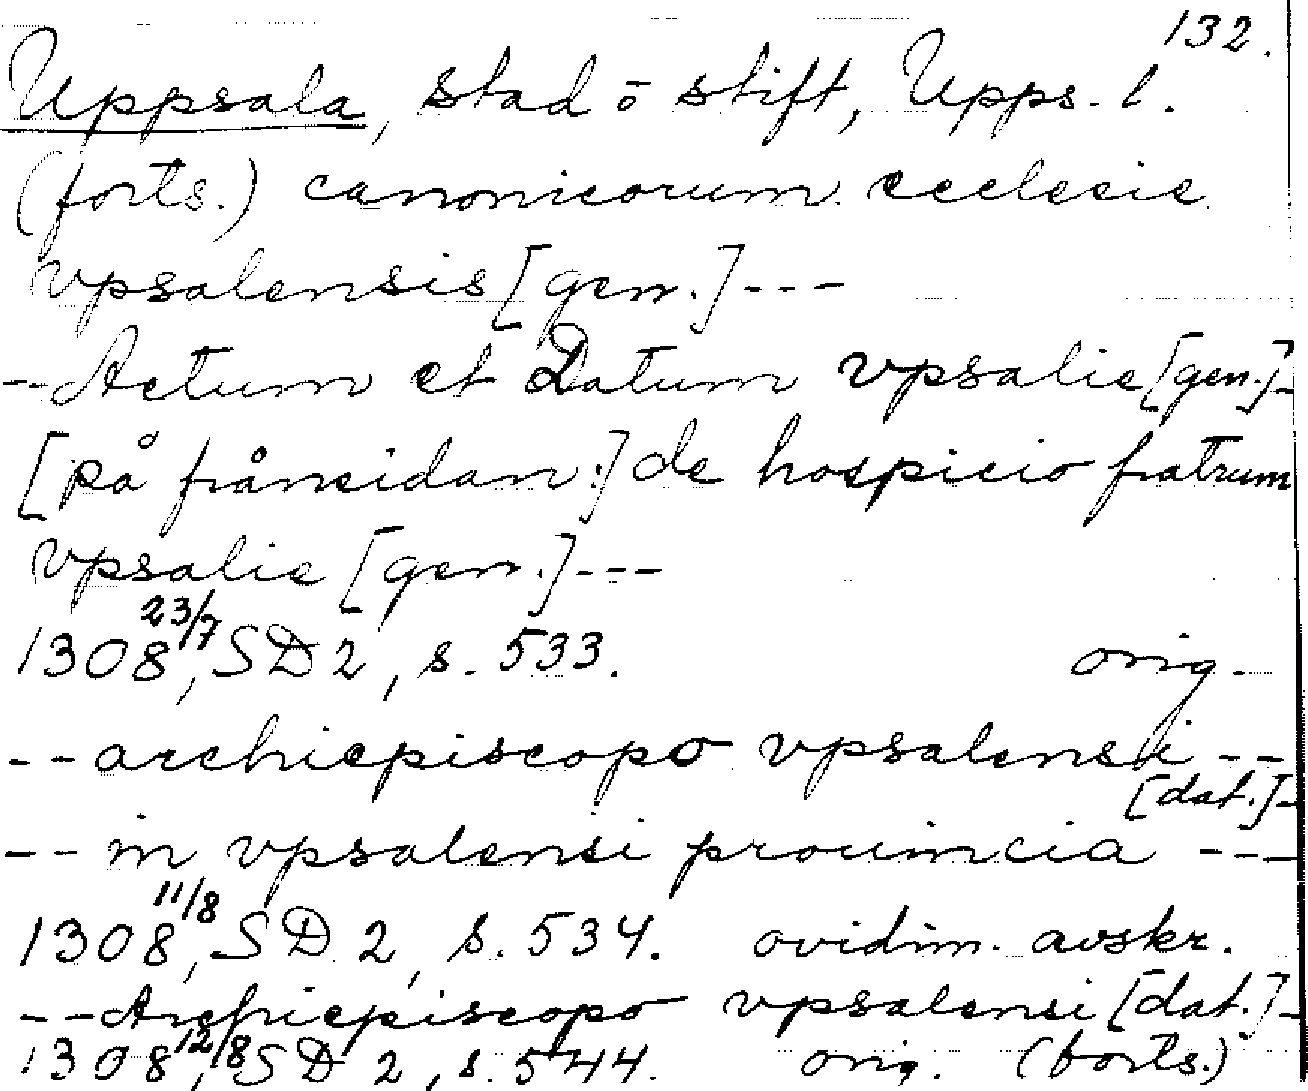 132.
Uppsala, stad o stift, Upps. l.
(forts.) canonicorum ecclesie
vpsalensis [gen.] ---
-- Actum et Datum vpsalie [gen.] -
[på frånsidan:] de hospicio fratrum
vpsalie [gen.] ---
1308 23/7, SD 2, s. 533. orig.
-- archiepiscopo vpsalensi --
[dat.] -
-- in vpsalensi prouincia ---
1308 11/8, SD 2, s. 534. ovidim. avskr.
-- Archiepiscopo vpsalensi [dat.] -
1308 12/8, SD 2, s. 544. orig. (forts.)